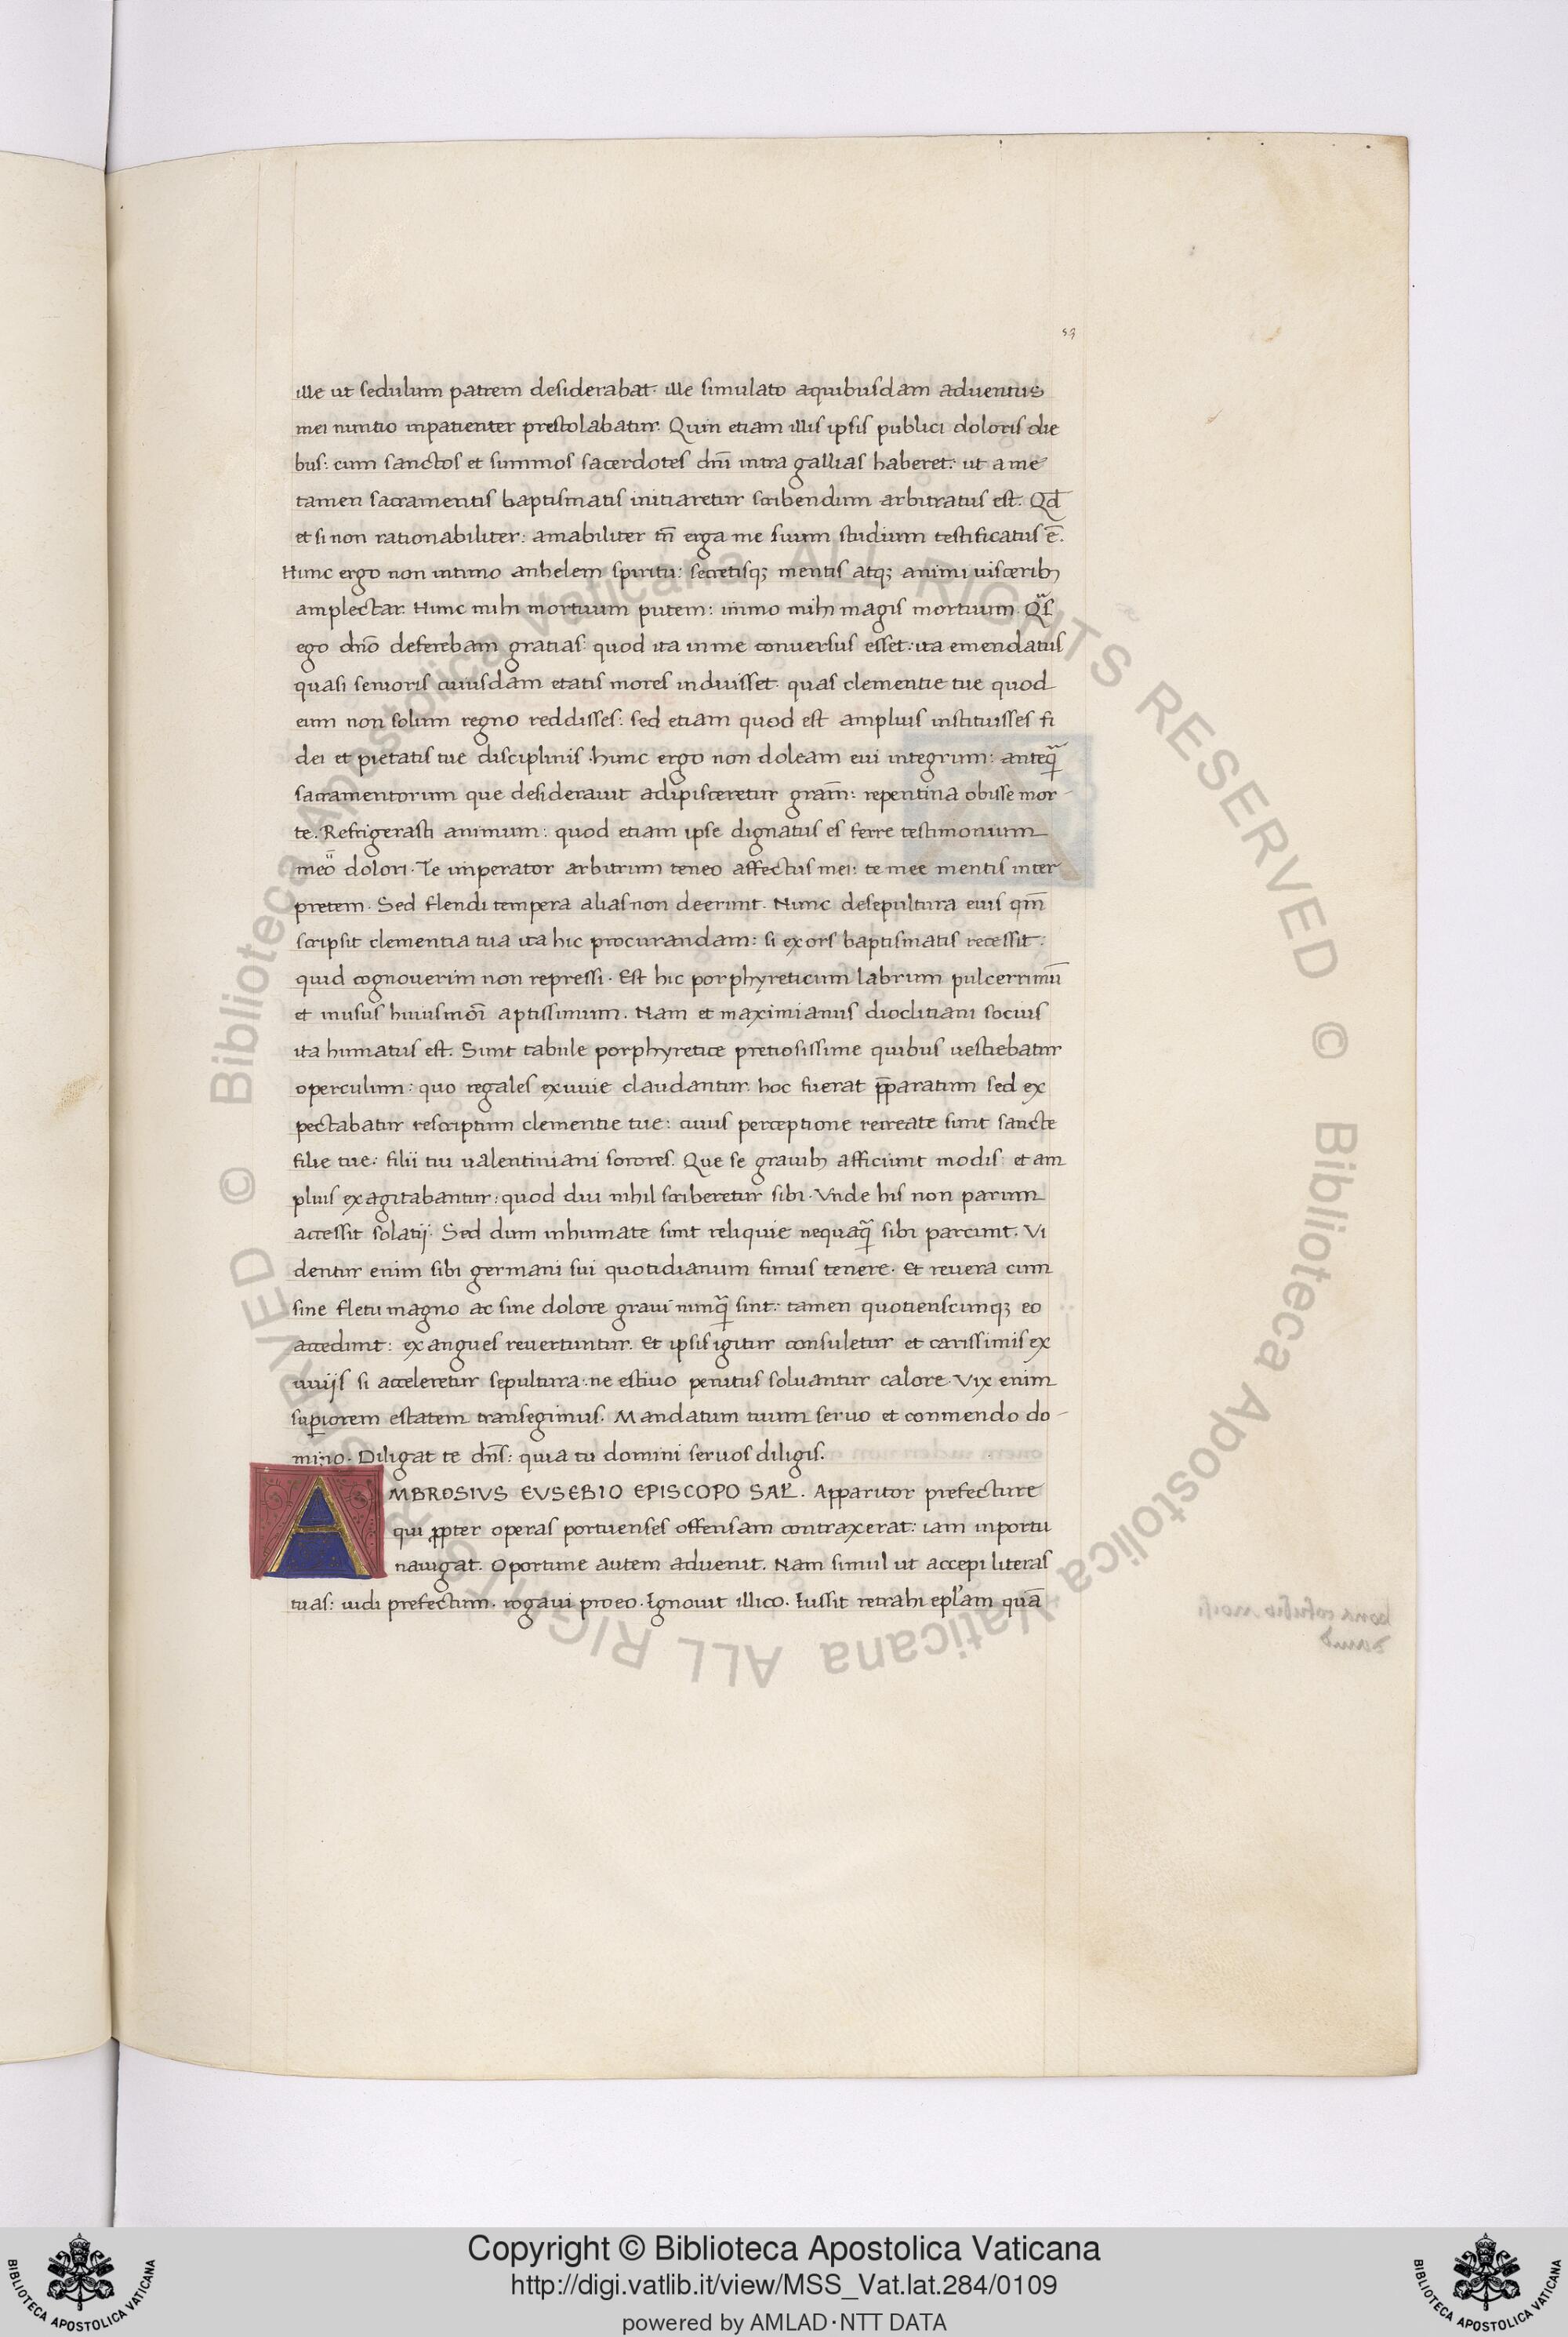 59
ille ut sedulum patrem desiderabat· ille simulato aquibusdam aduentus
mei nuntio inpatienter prestolabatur. Quin etiam illis ipsis publici doloris die
bus: cum sanctos et summos sacerdotes dñi intra gallias haberet: ut a me
tamen sacramentis baptismatis initiaretur scribendum arbitratus est. Qđ
et si non rationabiliter: amabiliter tñ erga me suum studium testificatus ē.
Hunc ergo non intimo anhelem spiritu: secretisq; mentis atq; animi uiscerib;
amplectar. Hunc mihi mortuum putem: immo mihi magis mortuum. Qͣs
ego dño deferebam gratias: quod ita in me conuersus esset: ita emendatus
quasi senioris cuiusdam etatis mores induisset· quas clementie tue quod
eum non solum regno reddisses: sed etiam quod est amplius instituisses fi
dei et pietatis tue disciplinis· hunc ergo non doleam eui integrum: anteqͣ
sacramentorum que desiderauit adipisceretur gram̄: repentina obisse mor-
te. Refrigerasti animum: quod etiam ipse dignatus es ferre testimonium
meo dolori· Te imperator arbitrum teneo affectus mei: te mee mentis inter
pretem. Sed flendi tempera alias non deerunt. Nunc desepultura eius qm̄
scripsit clementia tua ita hic procurandam: si exors baptismatis recessit:
quid cognouerim non repressi· Est hic porphyreticum labrum pulcerrimū
et inusus huiusmoi aptissimum. Nam et maximianus dioclitiani socius
ita humatus est. Sunt tabule porphyretice pretiosissime quibus uestiebatur
operculum: quo regales exuuie claudantur. hoc fuerat p̄paratum sed ex
pectabatur rescriptum clementie tue: cuius perceptione recreate sunt sancte
filie tue: filii tui ualentiniani sorores. Que se grauib; afficiunt modis: et am
plius exagitabantur: quod diu nihil scriberetur sibi· Vnde his non parum
accessit solatij· Sed dum inhumate sunt reliquie nequaqͣ sibi parcunt. Vi
dentur enim sibi germani sui quotidianum funus tenere· Et reuera cum
sine fletu magno ac sine dolore graui nunqͣ sint: tamen quotienscunq; eo
accedunt: exangues reuertuntur. Et ipsis igitur consuletur et carissimis ex
uuijs si acceleretur sepultura: ne estiuo penitus soluantur calore· Vix enim
suꝑiorem estatem transegimus. Mandatum tuum seruo et conmendo do-
mino· Diligat te dñs: quia tu domini seruos diligis.
AMBROSIVS EVSEBIO EPISCOPO SAL̄. Apparitor prefecture
qui ꝓpter operas portuenses offensam contraxerat: iam inportu
nauigat. Oportune autem aduenit. Nam simul ut accepi literas
tuas: uidi prefectum· rogaui pro eo· Ignouit illico. Iussit retrahi epl'am quā
Copyright © Biblioteca Apostolica Vaticana
http://digi.vatlib.it/view/MSS_Vat.lat.284/0109
powered by AMLAD·NTT DATA
BIBLIOTECA APOSTOLICA VATICANA
BIBLIOTECA APOSTOLICA VATICANA
© Biblioteca Apostolica Vaticana ALL RIGHTS RESERVED © Biblioteca Apostolica Vaticana ALL RIGHTS RESERVED